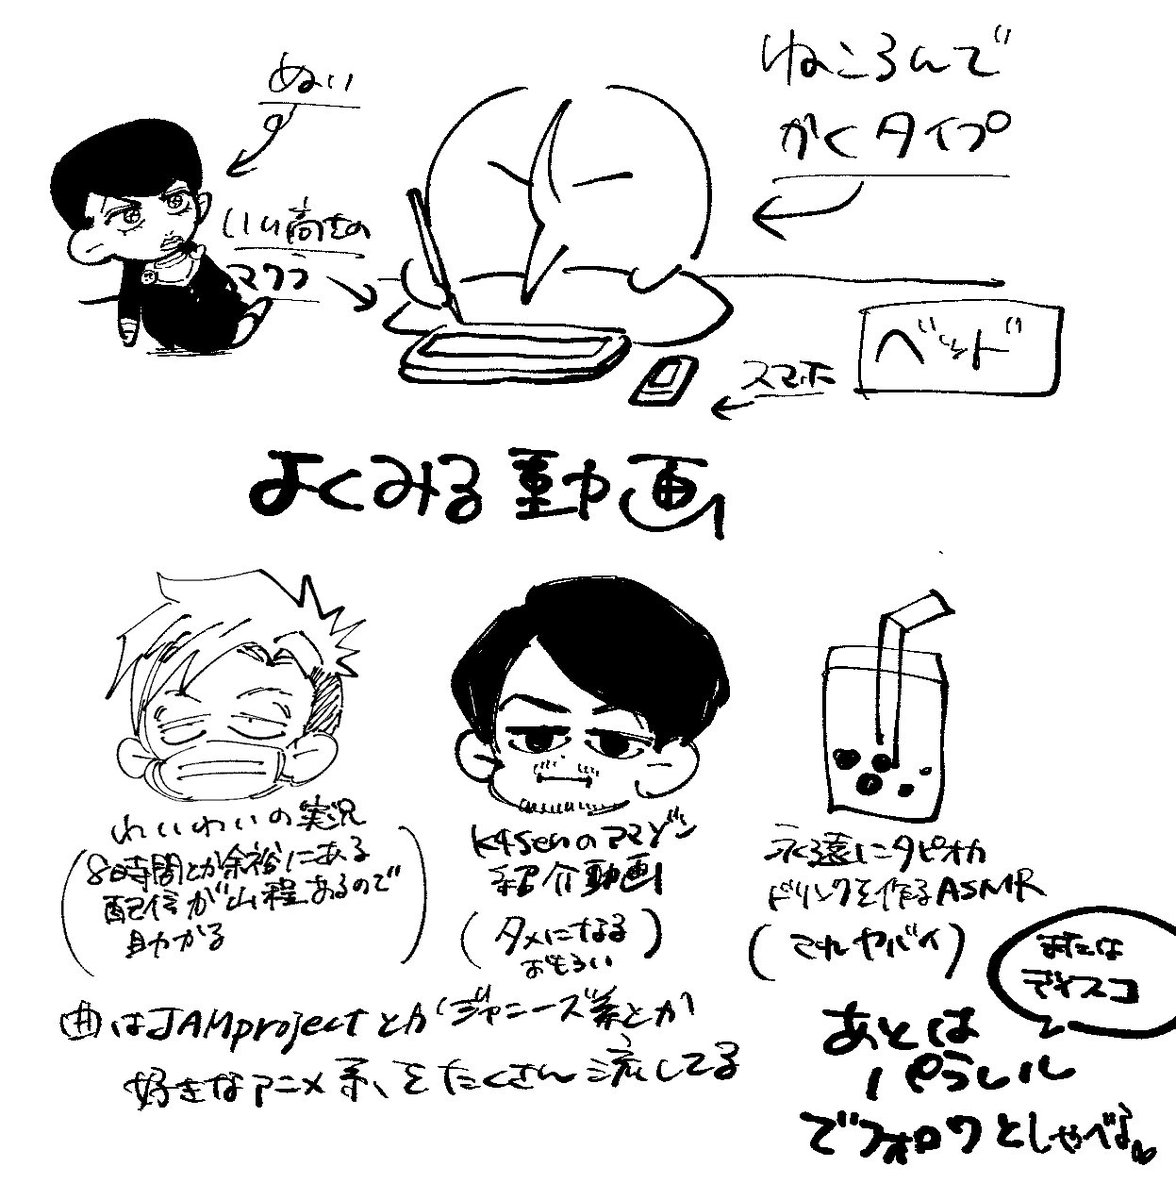 ぬい
ねころんで
かくタイプ
いい高さの
マクラ
スマホ
ベッド
よくみる動画
れいわいの実況
(8時間とか余裕にある
配信が山程あるので
助かる)
K4senのアマゾン
紹介動画
(タメになる
おもろい)
永遠にタピオカ
ドリンクを作るASMR
(これヤバイ)
曲はJAMprojectとかジャニーズ系とか
好きなアニメ系をたくさん流してる
または
ディスコ
あとは
パラレル
でフォロワとしゃべる